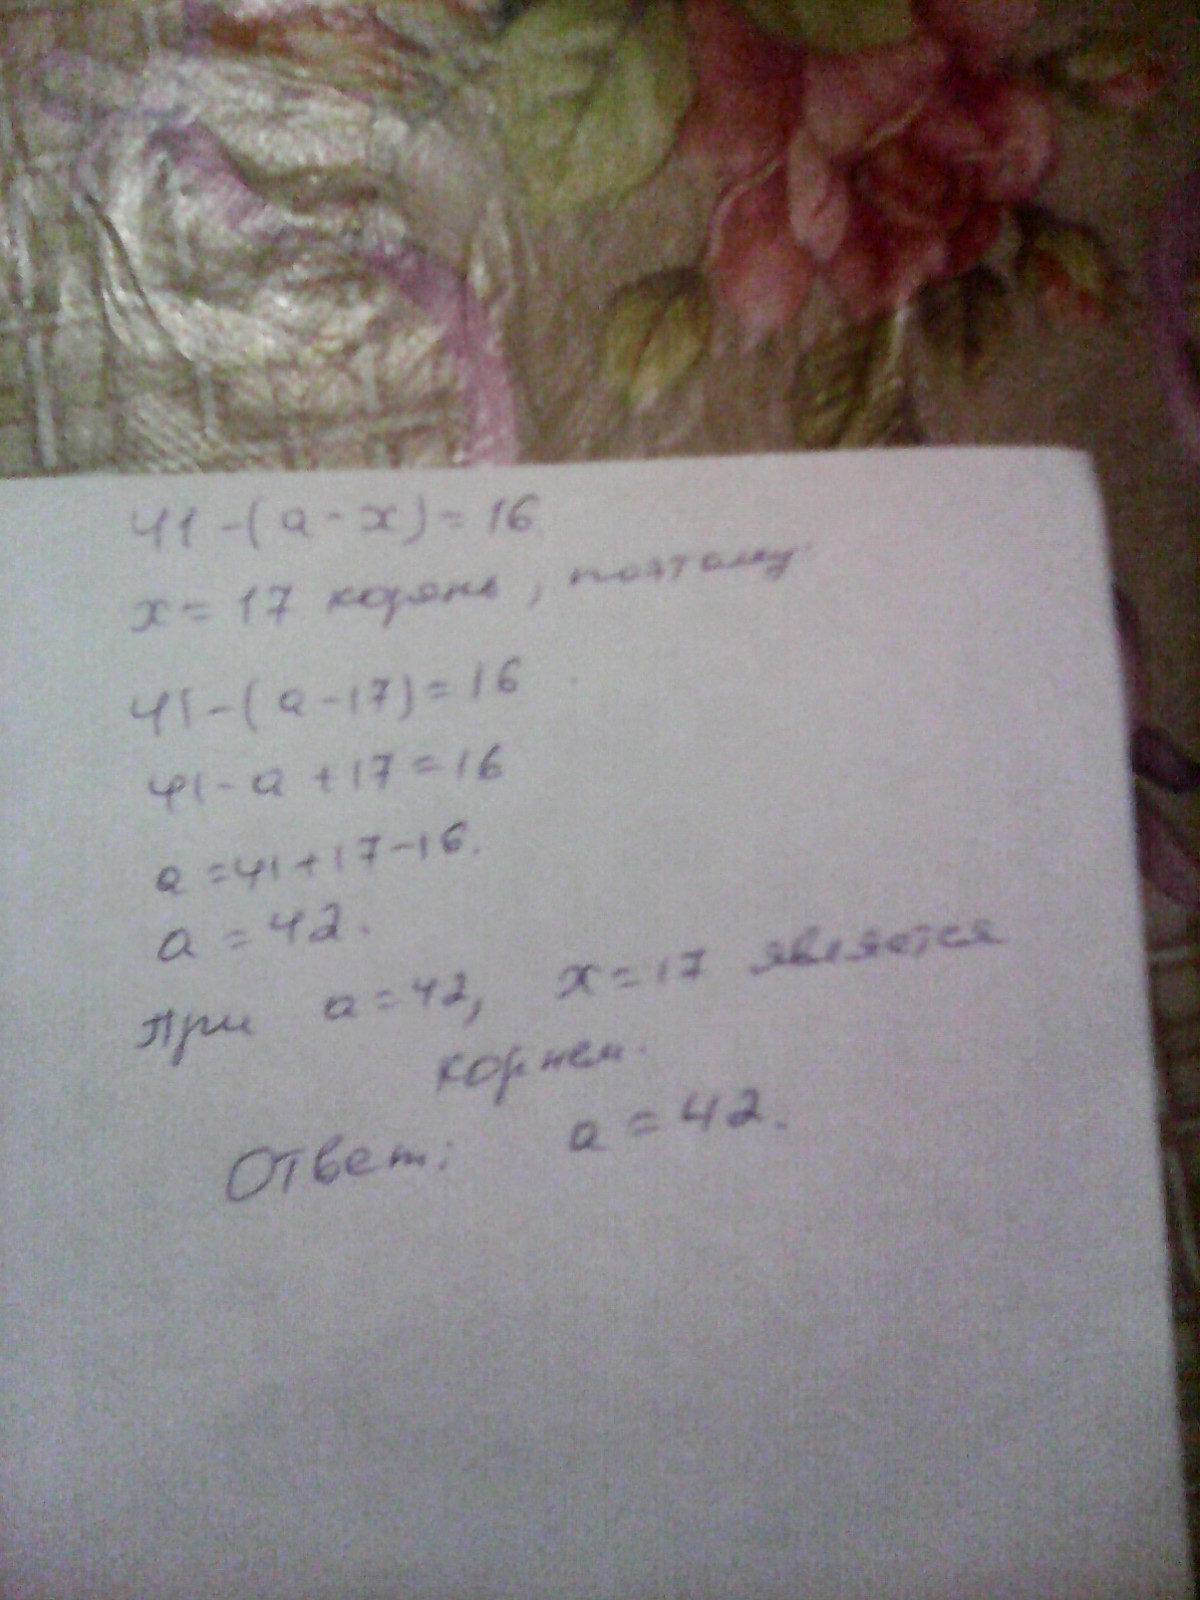 41-(a-x)=16
x=17 корень, поэтому:
41-(a-17)=16
41-a+17=16
a=41+17-16.
a=42.
при a=42, x=17 является
корнем.
Ответ: a=42.